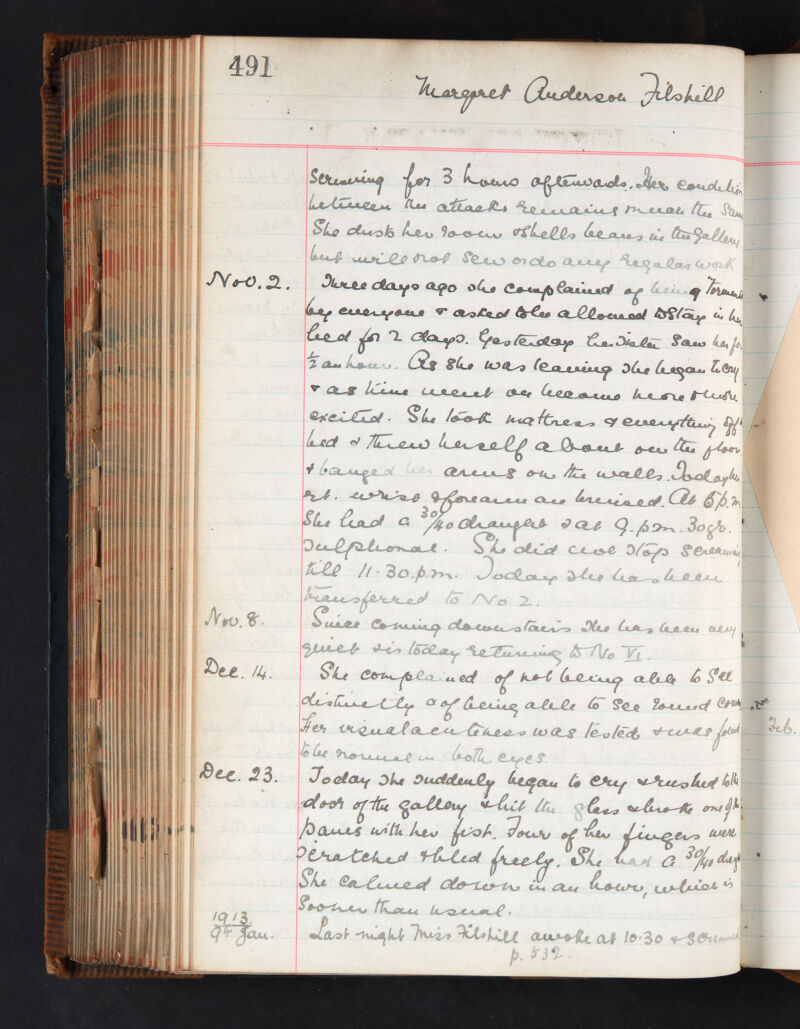 491
Margaret Anderson Filshill
Screaming for 3 hours afterwards. Her condition
between the attacks remains much the same
She dusts her room & shells beans in the Gallery
but will not sew or do any regular work
Nov. 2. Three days ago she complained of being
by everyone & asked to be allowed to stay in her
bed for 2 days. Yesterday her sister saw her for
½ an hour. As she was leaving she began to cry
& as time went on became more & more
excited. She took mattress & everything off
bed & threw herself about on the floor
& banged her arms on the walls. Today her
rt. wrist & forearm are bruised. At 6 p.m
She had a 30/40 draught & at 9. p.m. 30 gr.
Sulphonal. She did not stop screaming
till 11.30.p.m. Today she has been
transferred to No 2.
Nov. 8. Since coming downstairs she has been very
quiet & is today returning to No VI.
Dec. 14. She complained of not being able to see
distinctly & of being able to see round
Her visual acuteness was tested & was found
to be normal in both eyes.
Dec. 23. Today she suddenly began to cry & rushed to the
door of the gallery & hit the glass & broke one of the
panes with her fist. Four of her fingers were
scratched & bled freely. She had a 30/40
She calmed down in an hour, which is
sooner than usual.
1913
9th Jan. Last night Miss Filshill awoke at 10.30 & screamed
p. 532.
Feb.